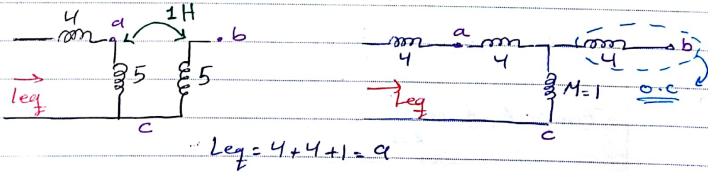 4 a 1H b
5 5
Leq
c
a b
4 4 4
M=1 o.c
Leq
c
Leq = 4+4+1 = 9